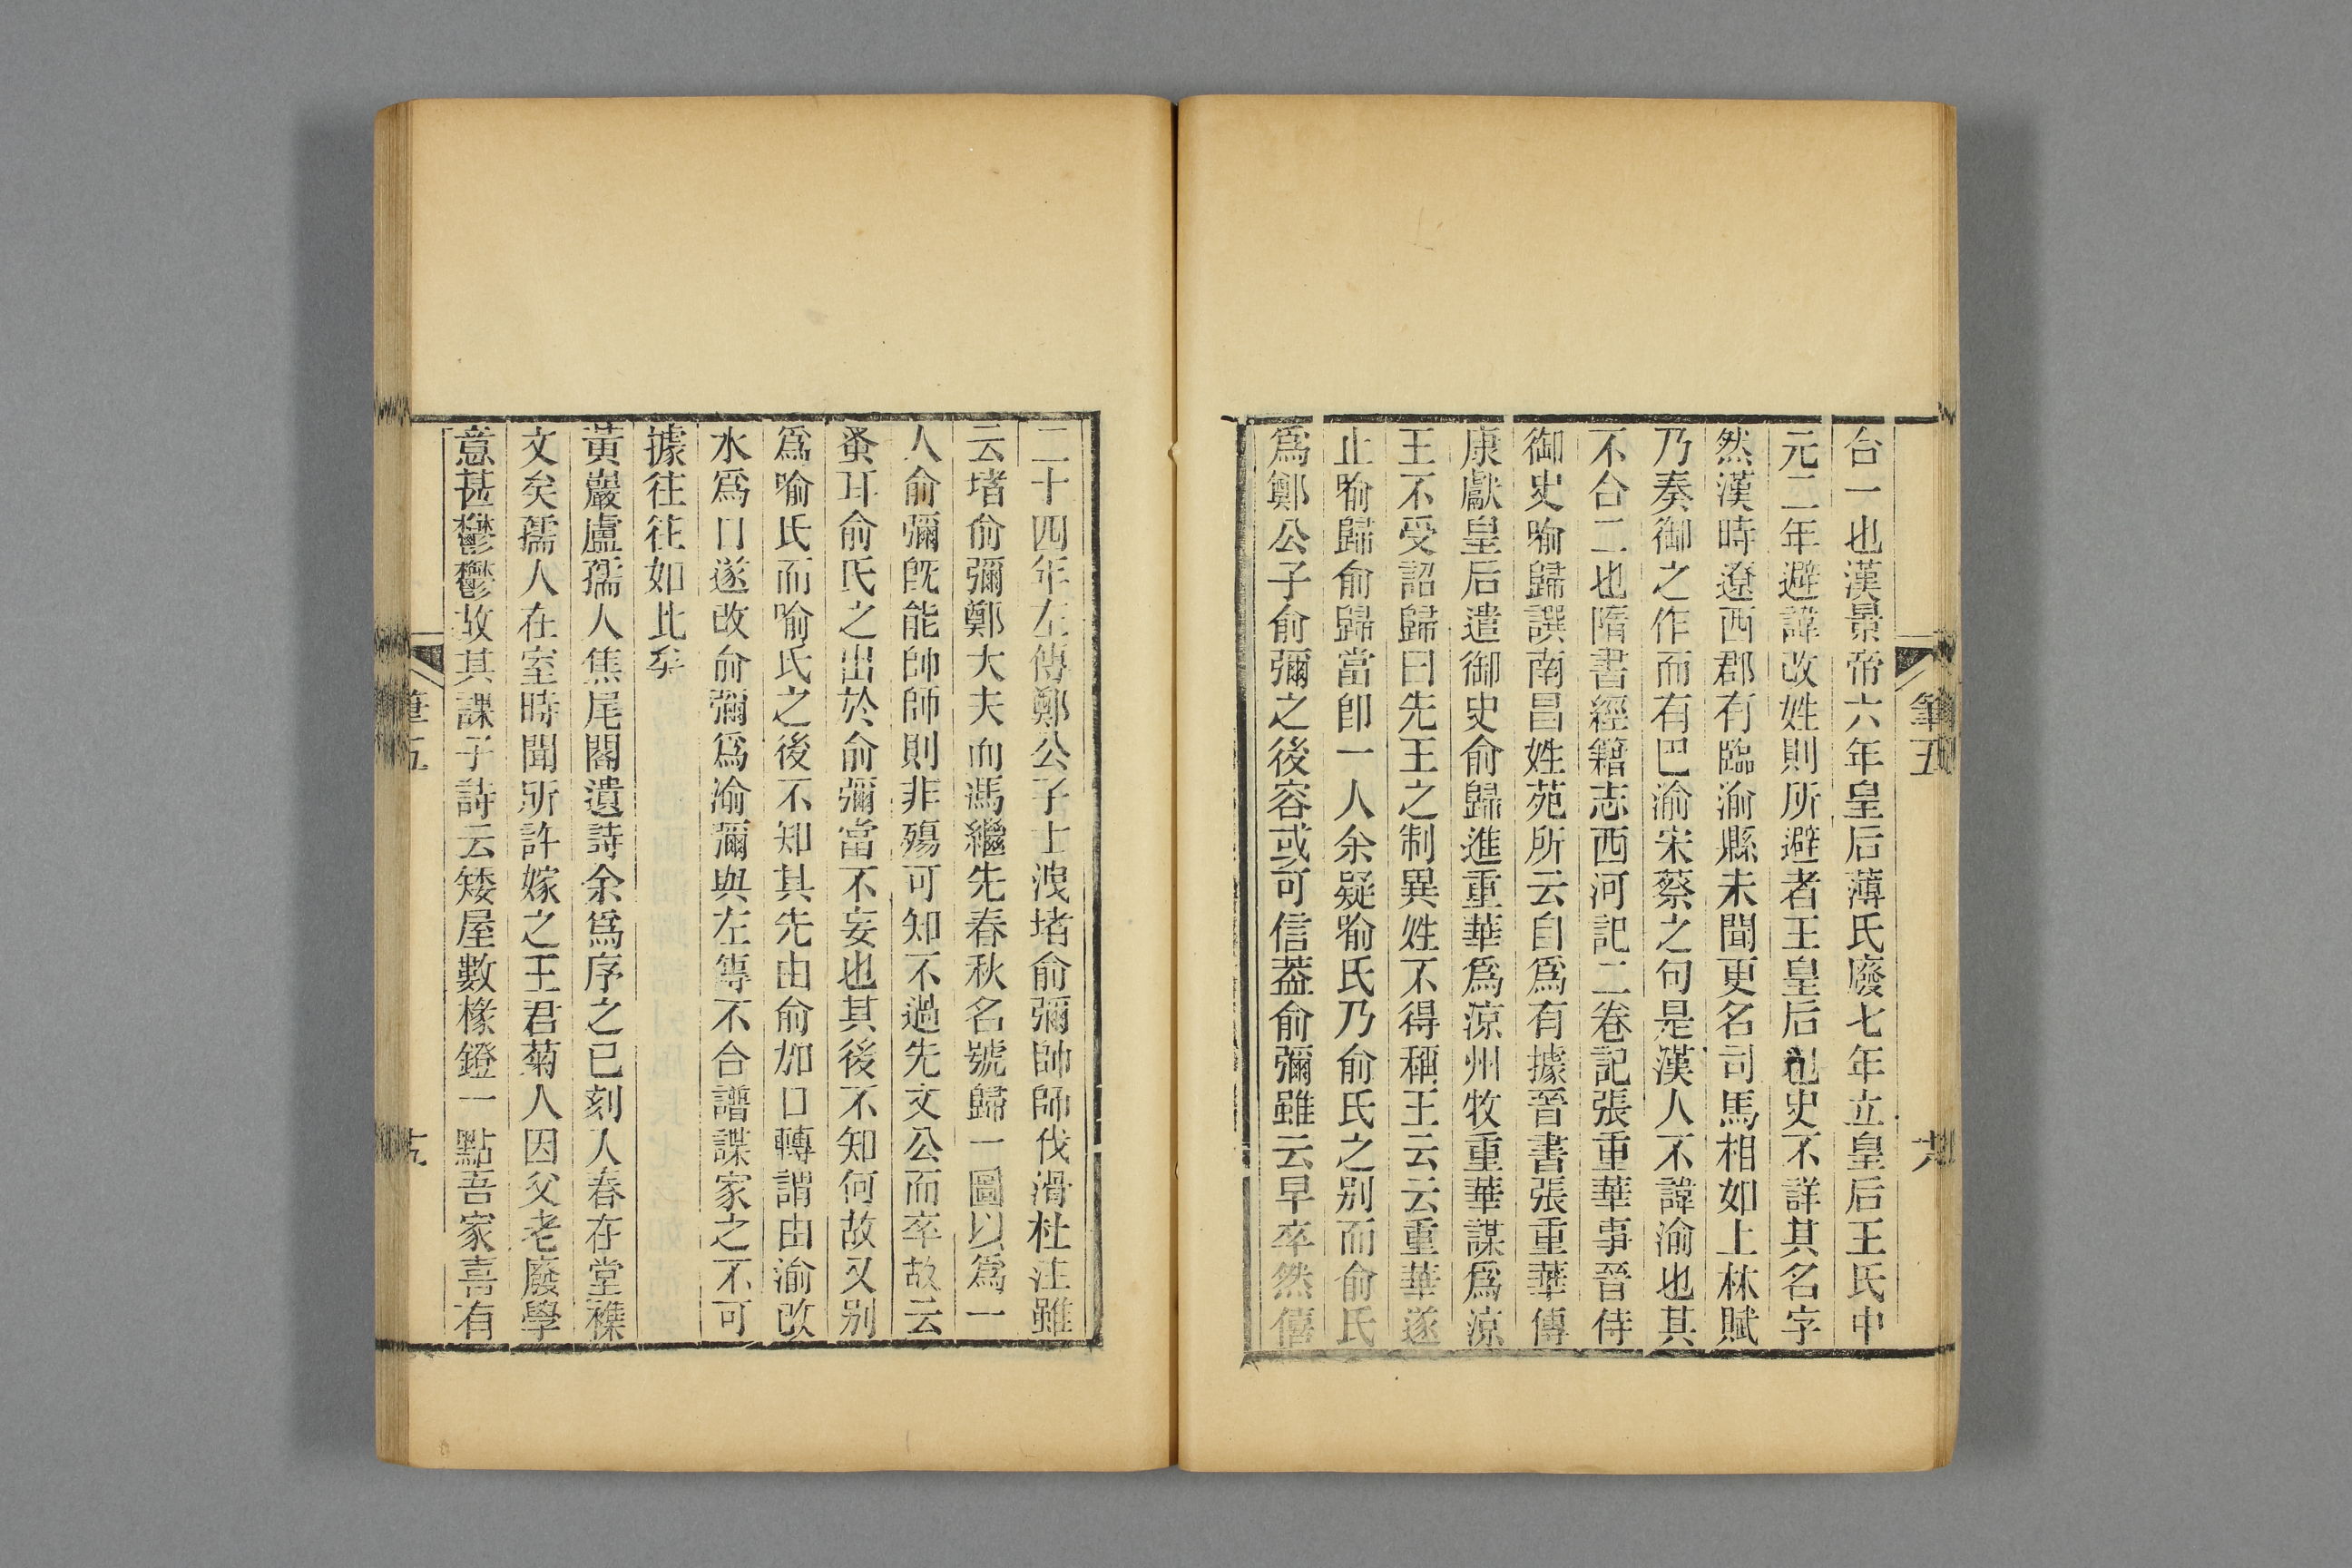 筆五
台一也漢景帝六年皇后薄氏廢七年立皇后王氏中
元二年避諱改姓則所避者王皇后也史不詳其名字
然漢時遼西郡有臨渝縣未聞更名司馬相如上林賦
乃奏御之作而有巴渝宋蔡之句是漢人不諱渝也其
不合二也隋書經籍志西河記二卷記張重華事晉侍
御史喻歸譔南昌姓苑所云自爲有據晉書張重華傳
康獻皇后遣御史俞歸進重華爲涼州牧重華謀爲涼
王不受詔歸曰先王之制異姓不得稱王云云重華遂
止喻歸俞歸當卽一人余疑喻氏乃俞氏之别而俞氏
爲鄭公子俞彌之後容或可信葢俞彌雖云早卒然僖
二十四年左傳鄭公子士洩堵俞彌帥師伐滑杜注雖
云堵俞彌鄭大夫而馮繼先春秋名號歸一圖以爲一
人俞彌旣能帥師則非殤可知不過先文公而卒故云
蚤耳俞氏之出於俞彌當不妄也其後不知何故又别
爲喻氏而喻氏之後不知其先由俞加口轉謂由渝改
水爲口遂改俞彌爲渝彌與左傳不合譜諜家之不可
據往往如此矣
黃巖盧孺人焦尾閣遺詩余爲序之已刻入春在堂襍
文矣孺人在室時聞所許嫁之王君菊人因父老廢學
意甚鬱鬱故其課子詩云矮屋數椽鐙一點吾家喜有
筆五